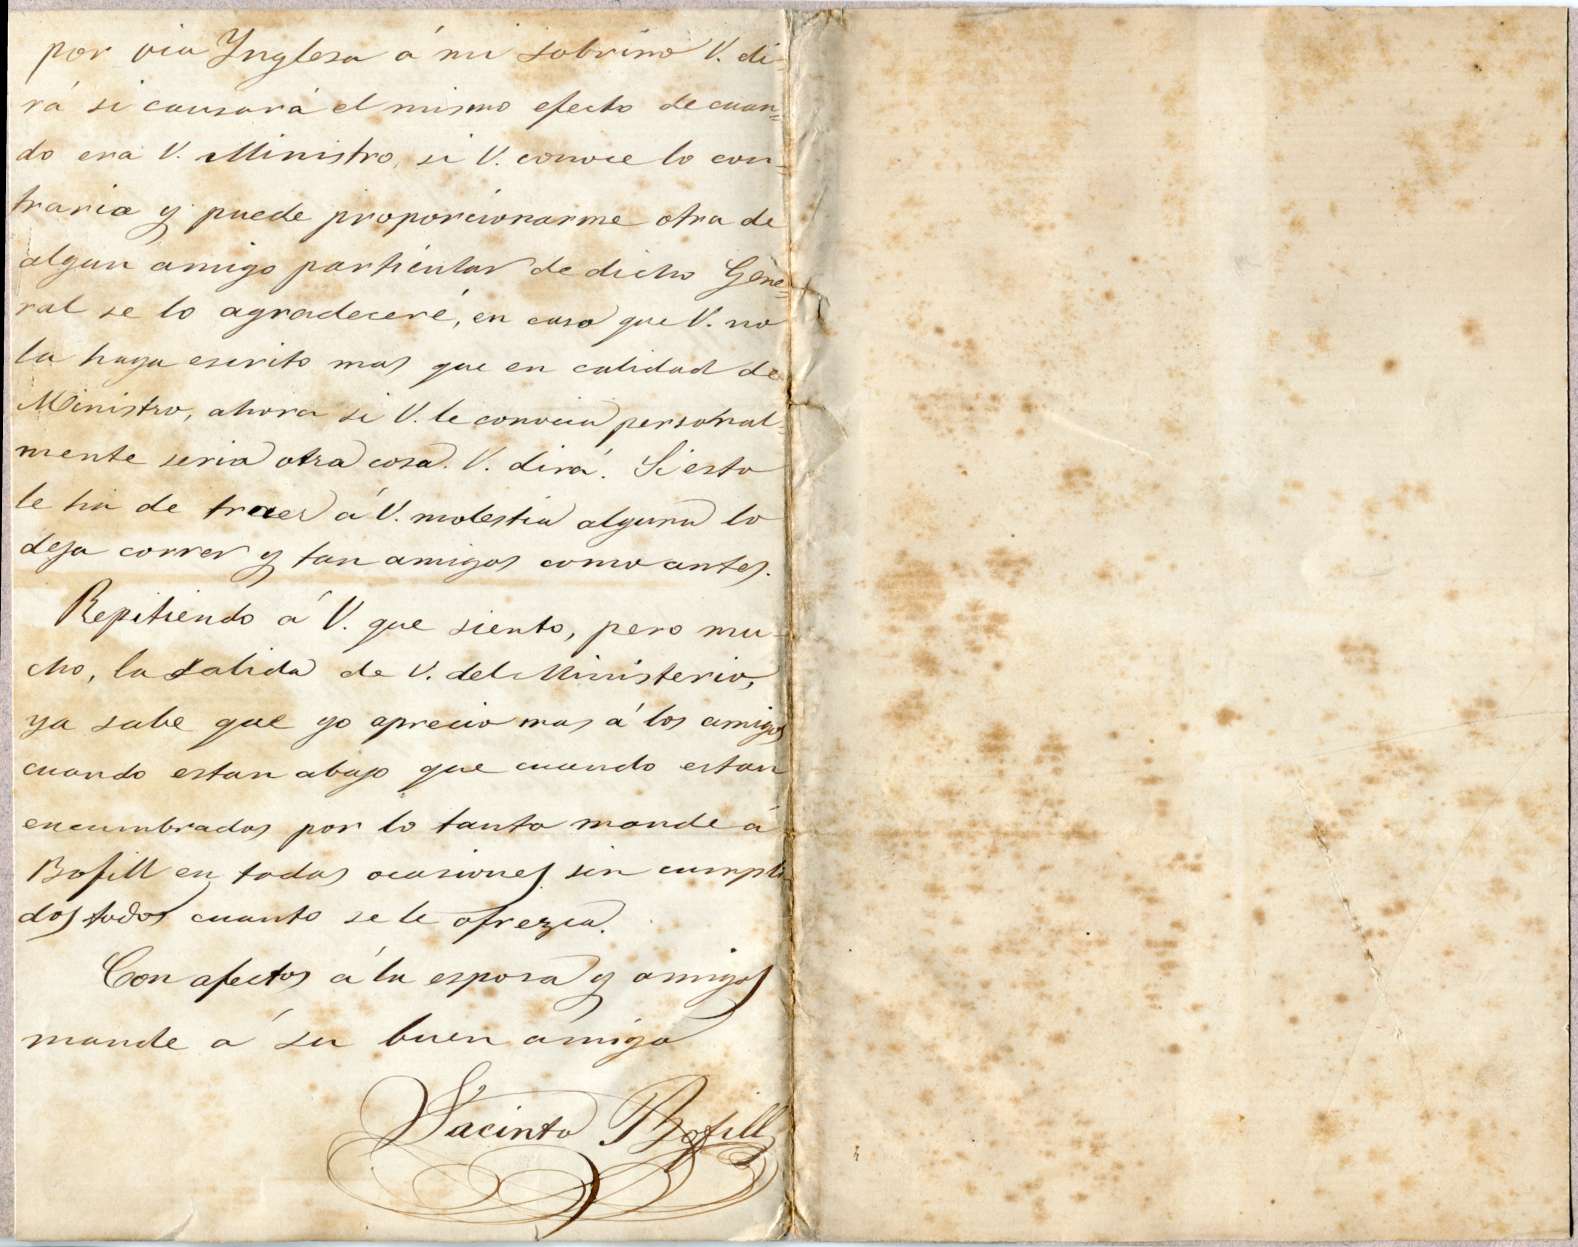 por via Ynglesa á mi sobrino V. di-
rá si causará el mismo efecto de cuan=
do era V. Ministro, si V. conoce lo con=
traria y puede proporcionarme otra de
algun amigo particular de dicho Géne=
ral se lo agradeceré, en caso que V. no
la haya escrito mas que en calidad de
Ministro, ahora si V. le conocia personal=
mente seria otra cosa. V. dirá. Si esto
le ha de traer á V. molestia alguna lo
deja correr y tan amigos como antes.
Repitiendo á V. que siento, pero mu-
cho, la salida de V. del Ministerio,
ya sabe que yo aprecio mas á los amigos
cuando estan abajo que cuando estan
encumbrados por lo tanto mande á
Bofill en todas ocasiones sin cumpli
dos todos cuanto se le ofrezca.
Con afectos á la esposa y amigos
mande á su buen amigo
Jacinto Bofill